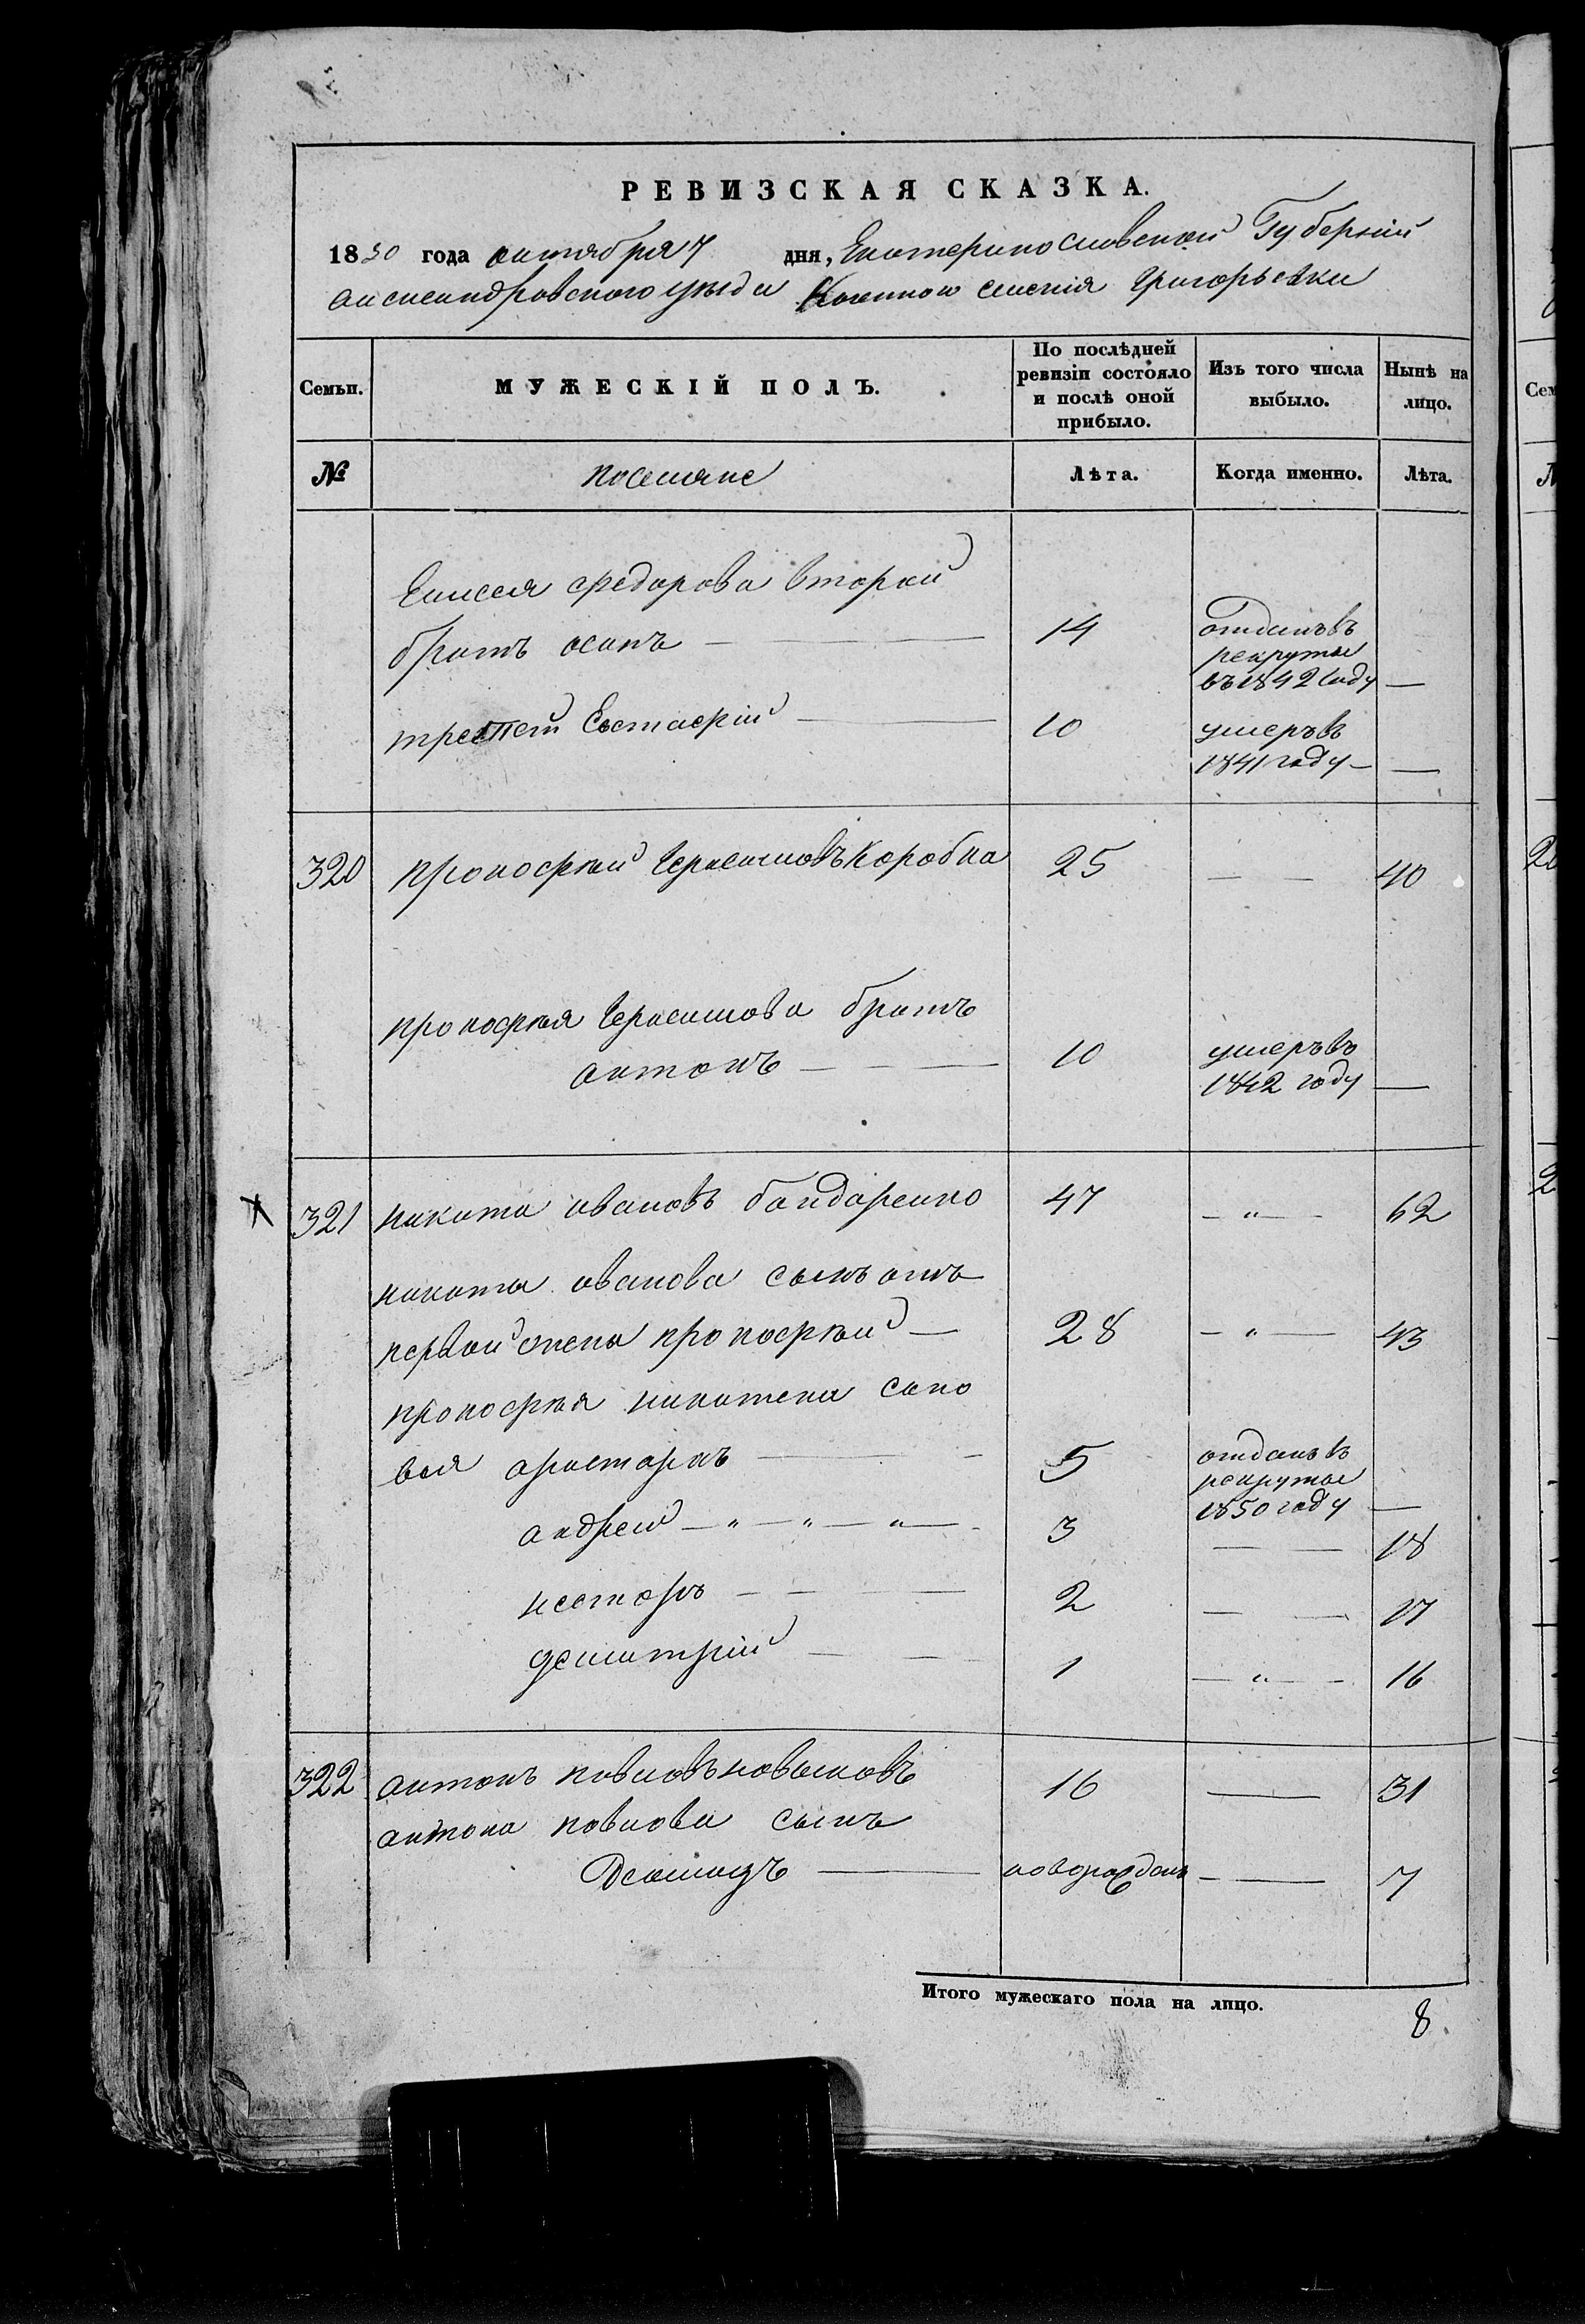 РЕВИЗСКАЯ СКАЗКА.
1850 года октября 7 дня, Екатеринославской Губерніи
александровского уезда Казенного селенія Григорьевки
Семьи. МУЖЕСКІЙ ПОЛЪ. По послѣдней ревизіи состояло и послѣ оной прибыло. Изъ того числа выбыло. Нынѣ на лицо.
№ поселяне Лѣта. Когда именно. Лѣта.
Елисея федорова второй
братъ осипъ — 14 отданъ въ
рекруты
въ 1842 году —
третей Евстафій — 10 умеръ въ
1841 году — —
320 прокофий Герасимовъ Коробка 25 — — 40
прокофия Герасимова братъ
антонъ — 10 умеръ въ
1842 году —
321 никита ивановъ бондаренко 47 — " — 62
никиты иванова сынъ отъ
первой жены прокофий — 28 — " — 43
прокофия никитена сыно
вья аристархъ — 5 отданъ въ
рекруты
1850 году —
андрей — " — " — " — 3 — — 18
несторъ — — — 2 — — 17
демитрий — — 1 — " — 16
322 антонъ павловъ 16 — 31
антона павлова сынъ
Демидъ — новорожденъ — 7
Итого мужескаго пола на лицо. 8